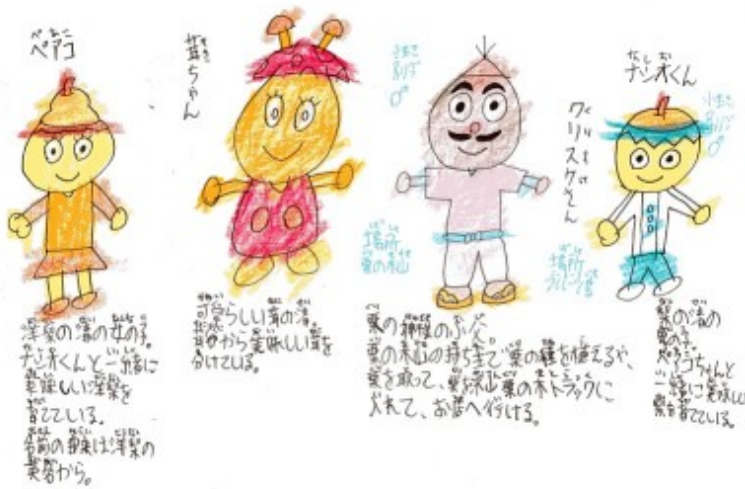 ペアコ
洋梨の渚の女の子。
ナシオくんと一緒に
美味しい洋梨を
育てている。
名前の由来は洋梨の
英語から。
茸ちゃん
可愛らしい茸の渚。
頭から美味しい茸を
分けている。
クリスケさん
場所
栗の木山
栗の神様のふ人。
栗の木山の持ち主で栗の種を植えるや、
栗を取って、栗を木山栗の木トラックに
入れて、お店へ行ける。
ナシオくん
場所
梨の渚の
男の子。
ペアコちゃんと
一緒に美味しい
梨を育てている。